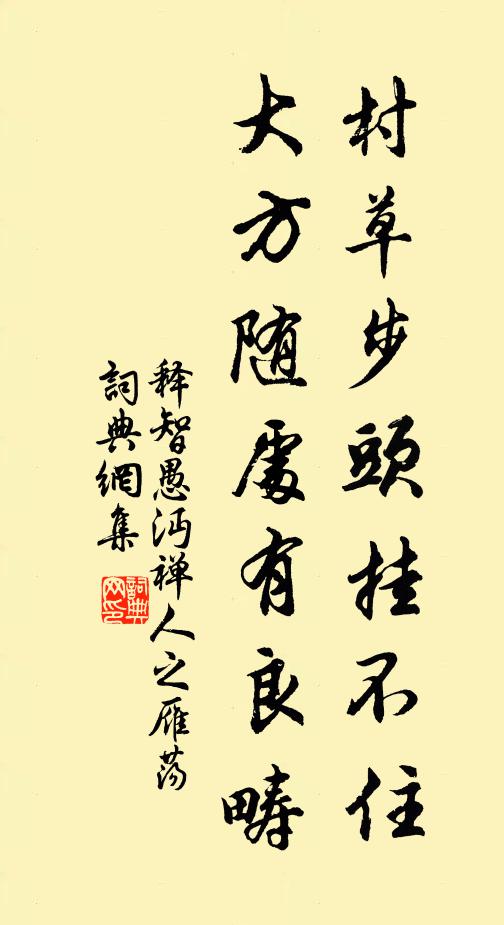 村草步頭挂不住
大方随處有良疇
释智愚沔禅人之雁荡
詞典網集
詞典網印